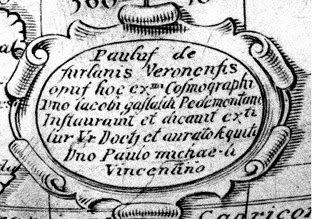 360
Pauluſ de
furlanis Veronenſis
opuſ hoc ex.mi Coſmographi
Dno iacobi gaſtaldi Pedemontanⁱ
Inſtaurauit et dicauit exti
iur. Vr Docti et aurato Equiti
Dno Paulo michae-li
Vincentino